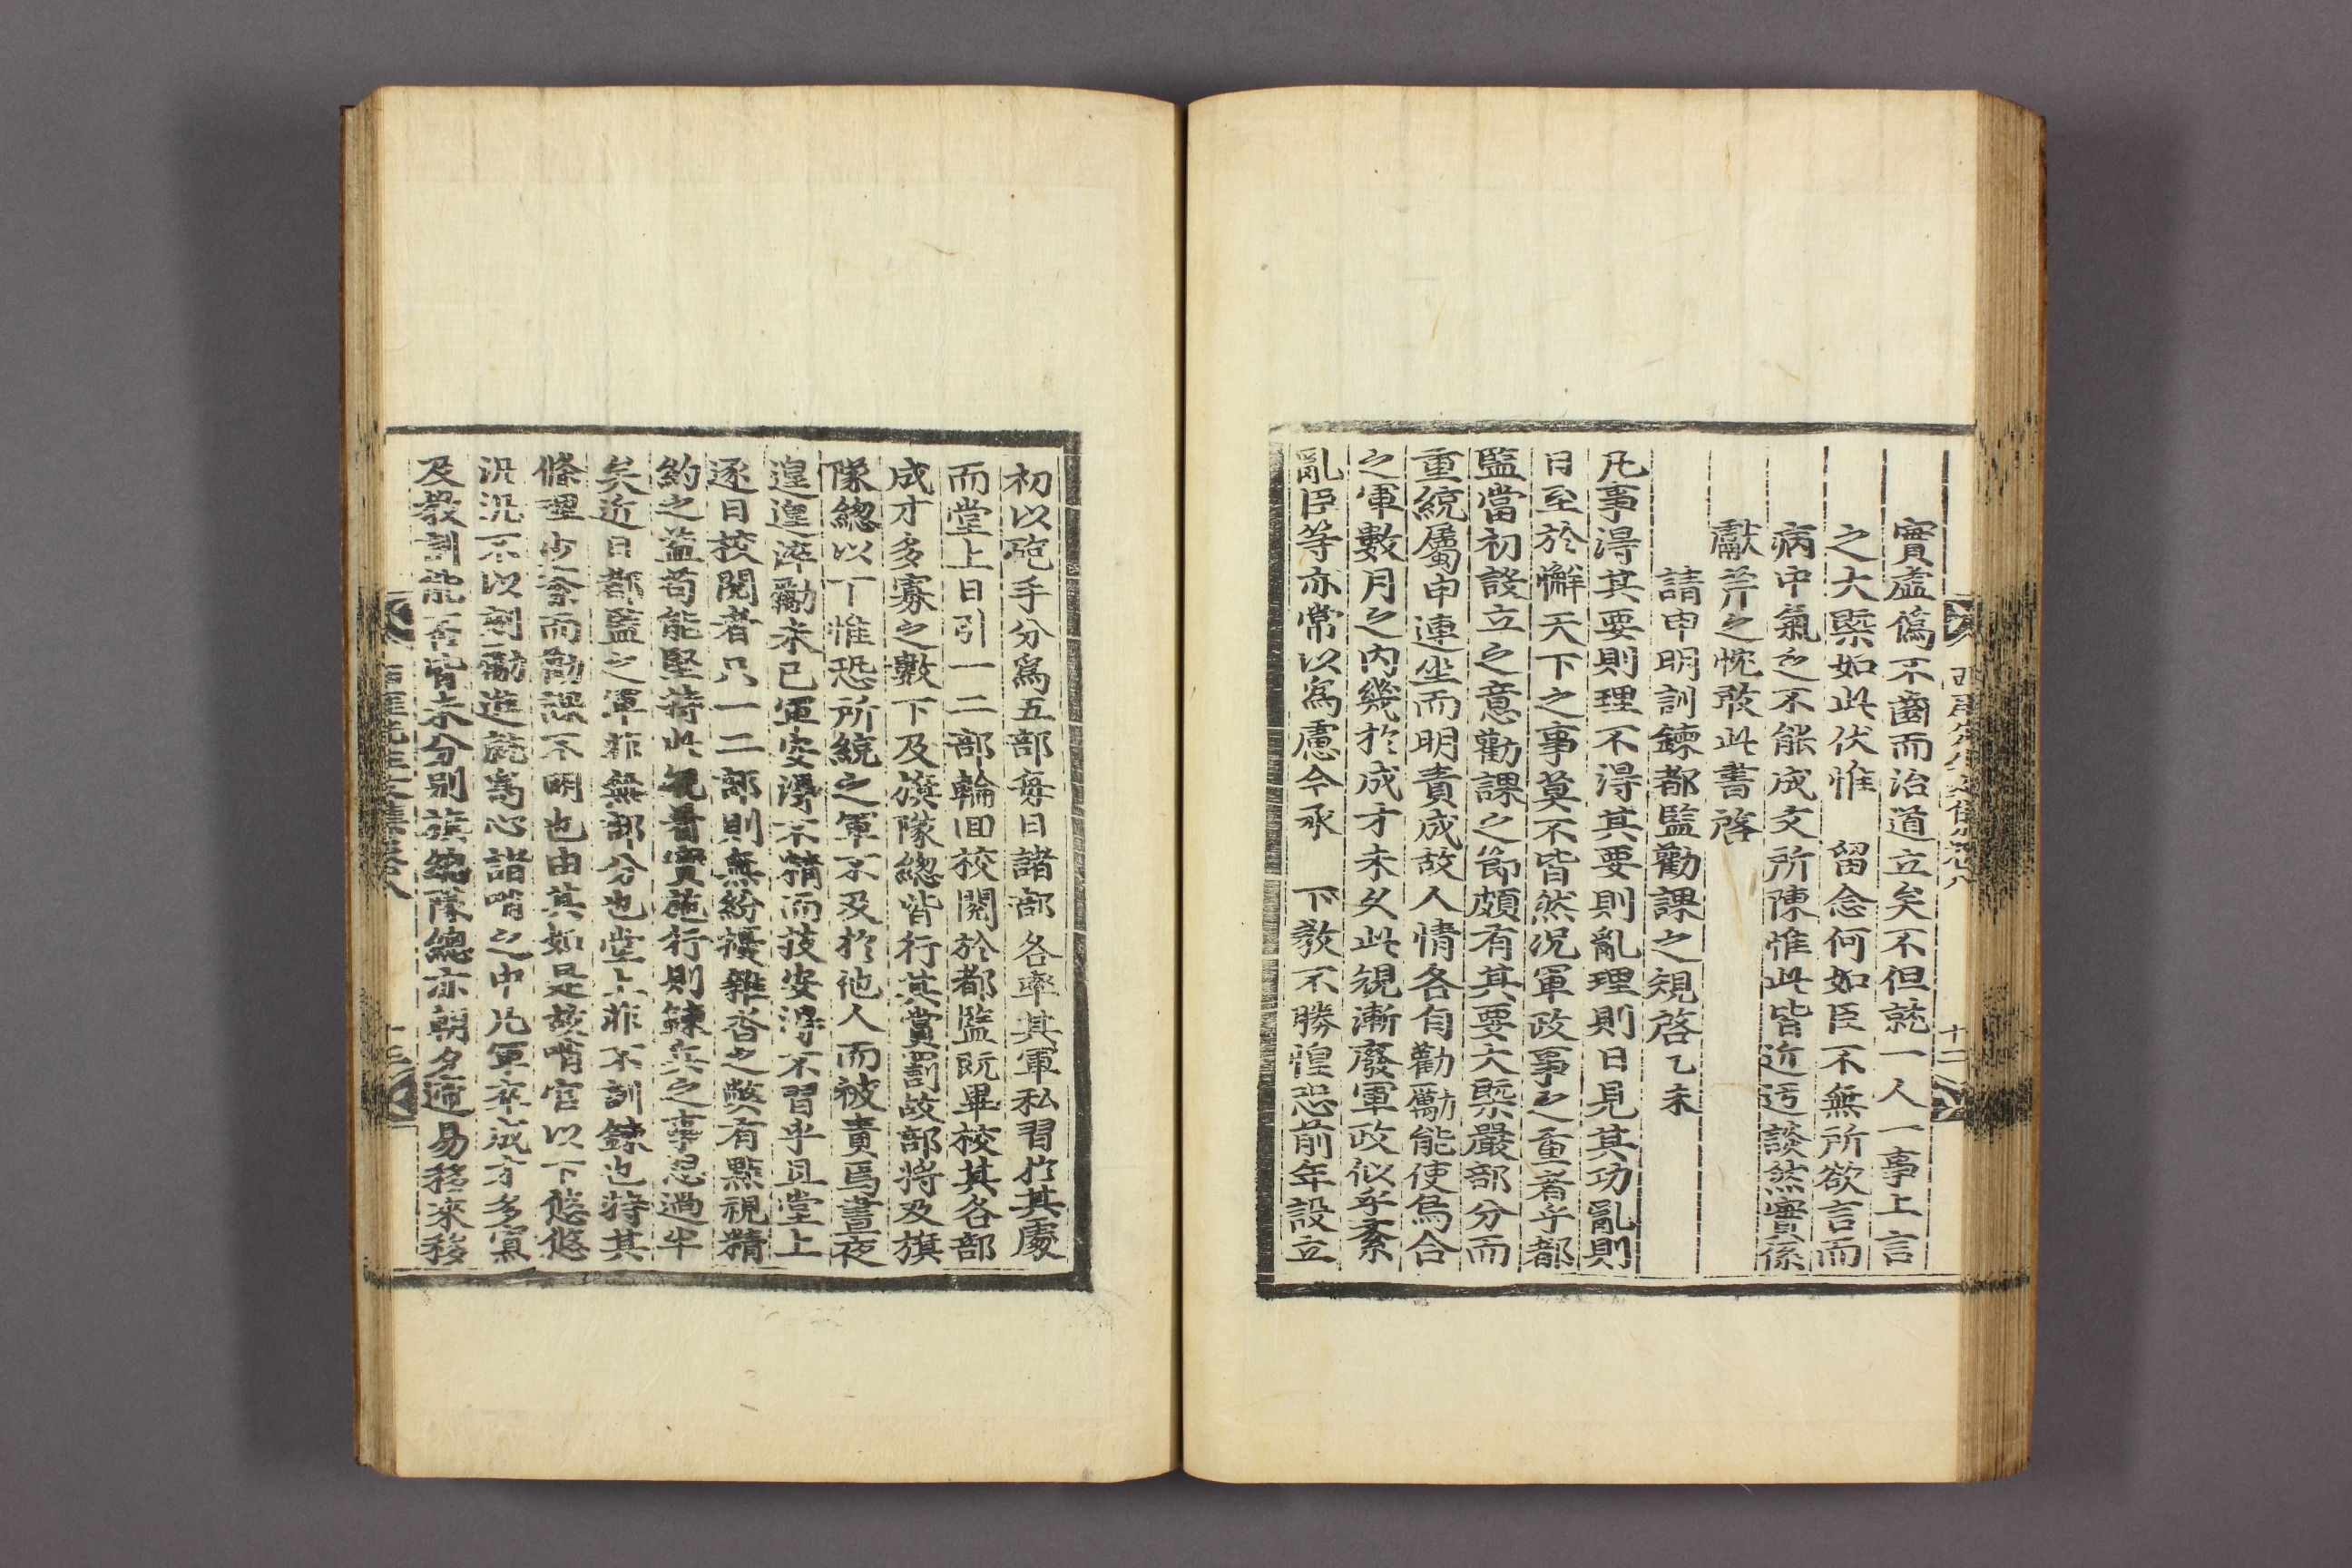 實虛僞不齒而治道立矣不但就一人一事上言
之大槩如此伏惟 留念何如臣不無所欲言而
病中氣乏不能成文所陳惟此皆近迃談然實係
獻芹之忱敢此書啓
請申明訓鍊都監勸課之規啓乙未
凡事得其要則理不得其要則亂理則日見其功亂則
日至於懈天下之事莫不皆然况軍政事之重者乎都
監當初設立之意勸課之節頗有其要大槩嚴部分而
重統屬申連坐而明責成故人情各自勸勵能使烏合
之軍數月之內幾於成才未久此規漸廢軍政似乎紊
亂臣等亦常以爲慮今承 下敎不勝惶恐前年設立
西厓先生文集卷八 十二
初以砲手分爲五部每日諸部各率其軍私習於其處
而堂上日引一二部輪回校閱於都監旣畢校其各部
成才多寡之數下及旗隊總皆行其賞罰故部將及旗
隊總以下惟恐所統之軍不及於他人而被責焉晝夜
遑遑淬勵未已軍安得不精而技安得不習乎且堂上
逐日校閱者只一二部則無紛擾雜沓之弊有點視精
約之益苟能堅持此規着實施行則鍊兵之事思過半
矣近日都監之軍非無部分也堂上非不訓鍊也特其
條理少紊而勸課不明也由其如是故哨官以下悠悠
泛泛不以刻勵進就爲心諸哨之中凡軍卒成才多寡
及敎訓能否皆未分別旗總隊總亦朝夕遞易移來移
西厓先生文集卷八 十三